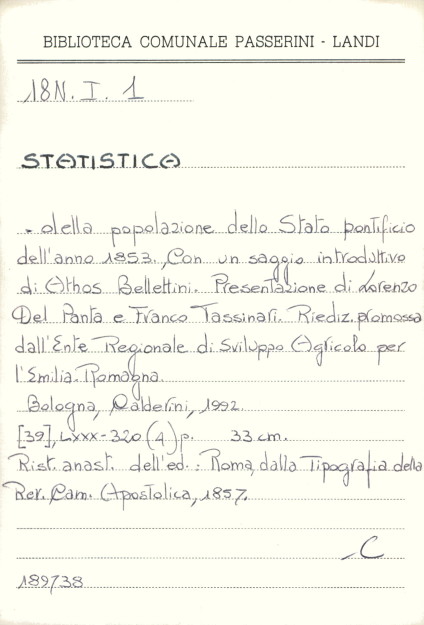 BIBLIOTECA COMUNALE PASSERINI - LANDI
18N. I. 1
STATISTICA
- della popolazione dello Stato pontificio
dell'anno 1853. Con un saggio introduttivo
di Athos Bellettini. Presentazione di Lorenzo
Del Panta e Franco Tassinari. Riediz. promossa
dall'Ente Regionale di Sviluppo Agricolo per
l'Emilia-Romagna.
Bologna, Calderini, 1992.
[39], LXXX-320 (4) p. 33 cm.
Rist. anast. dell'ed.: Roma, dalla Tipografia della
Rev. Cam. Apostolica, 1857.
-C
189738